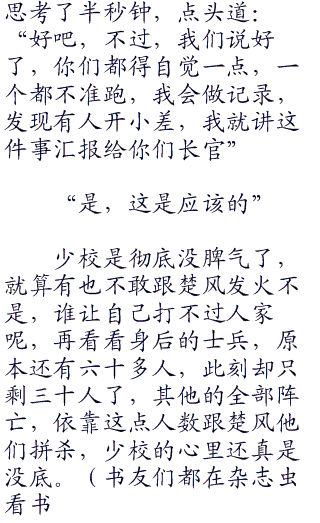 思考了半秒钟，点头道：
“好吧，不过，我们说好
了，你们都得自觉一点，一
个都不准跑，我会做记录，
发现有人开小差，我就讲这
件事汇报给你们长官”
“是，这是应该的”
少校是彻底没脾气了，
就算有也不敢跟楚风发火不
是，谁让自己打不过人家
呢，再看看身后的士兵，原
本还有六十多人，此刻却只
剩三十人了，其他的全部阵
亡，依靠这点人数跟楚风他
们拼杀，少校的心里还真是
没底。（书友们都在杂志虫
看书